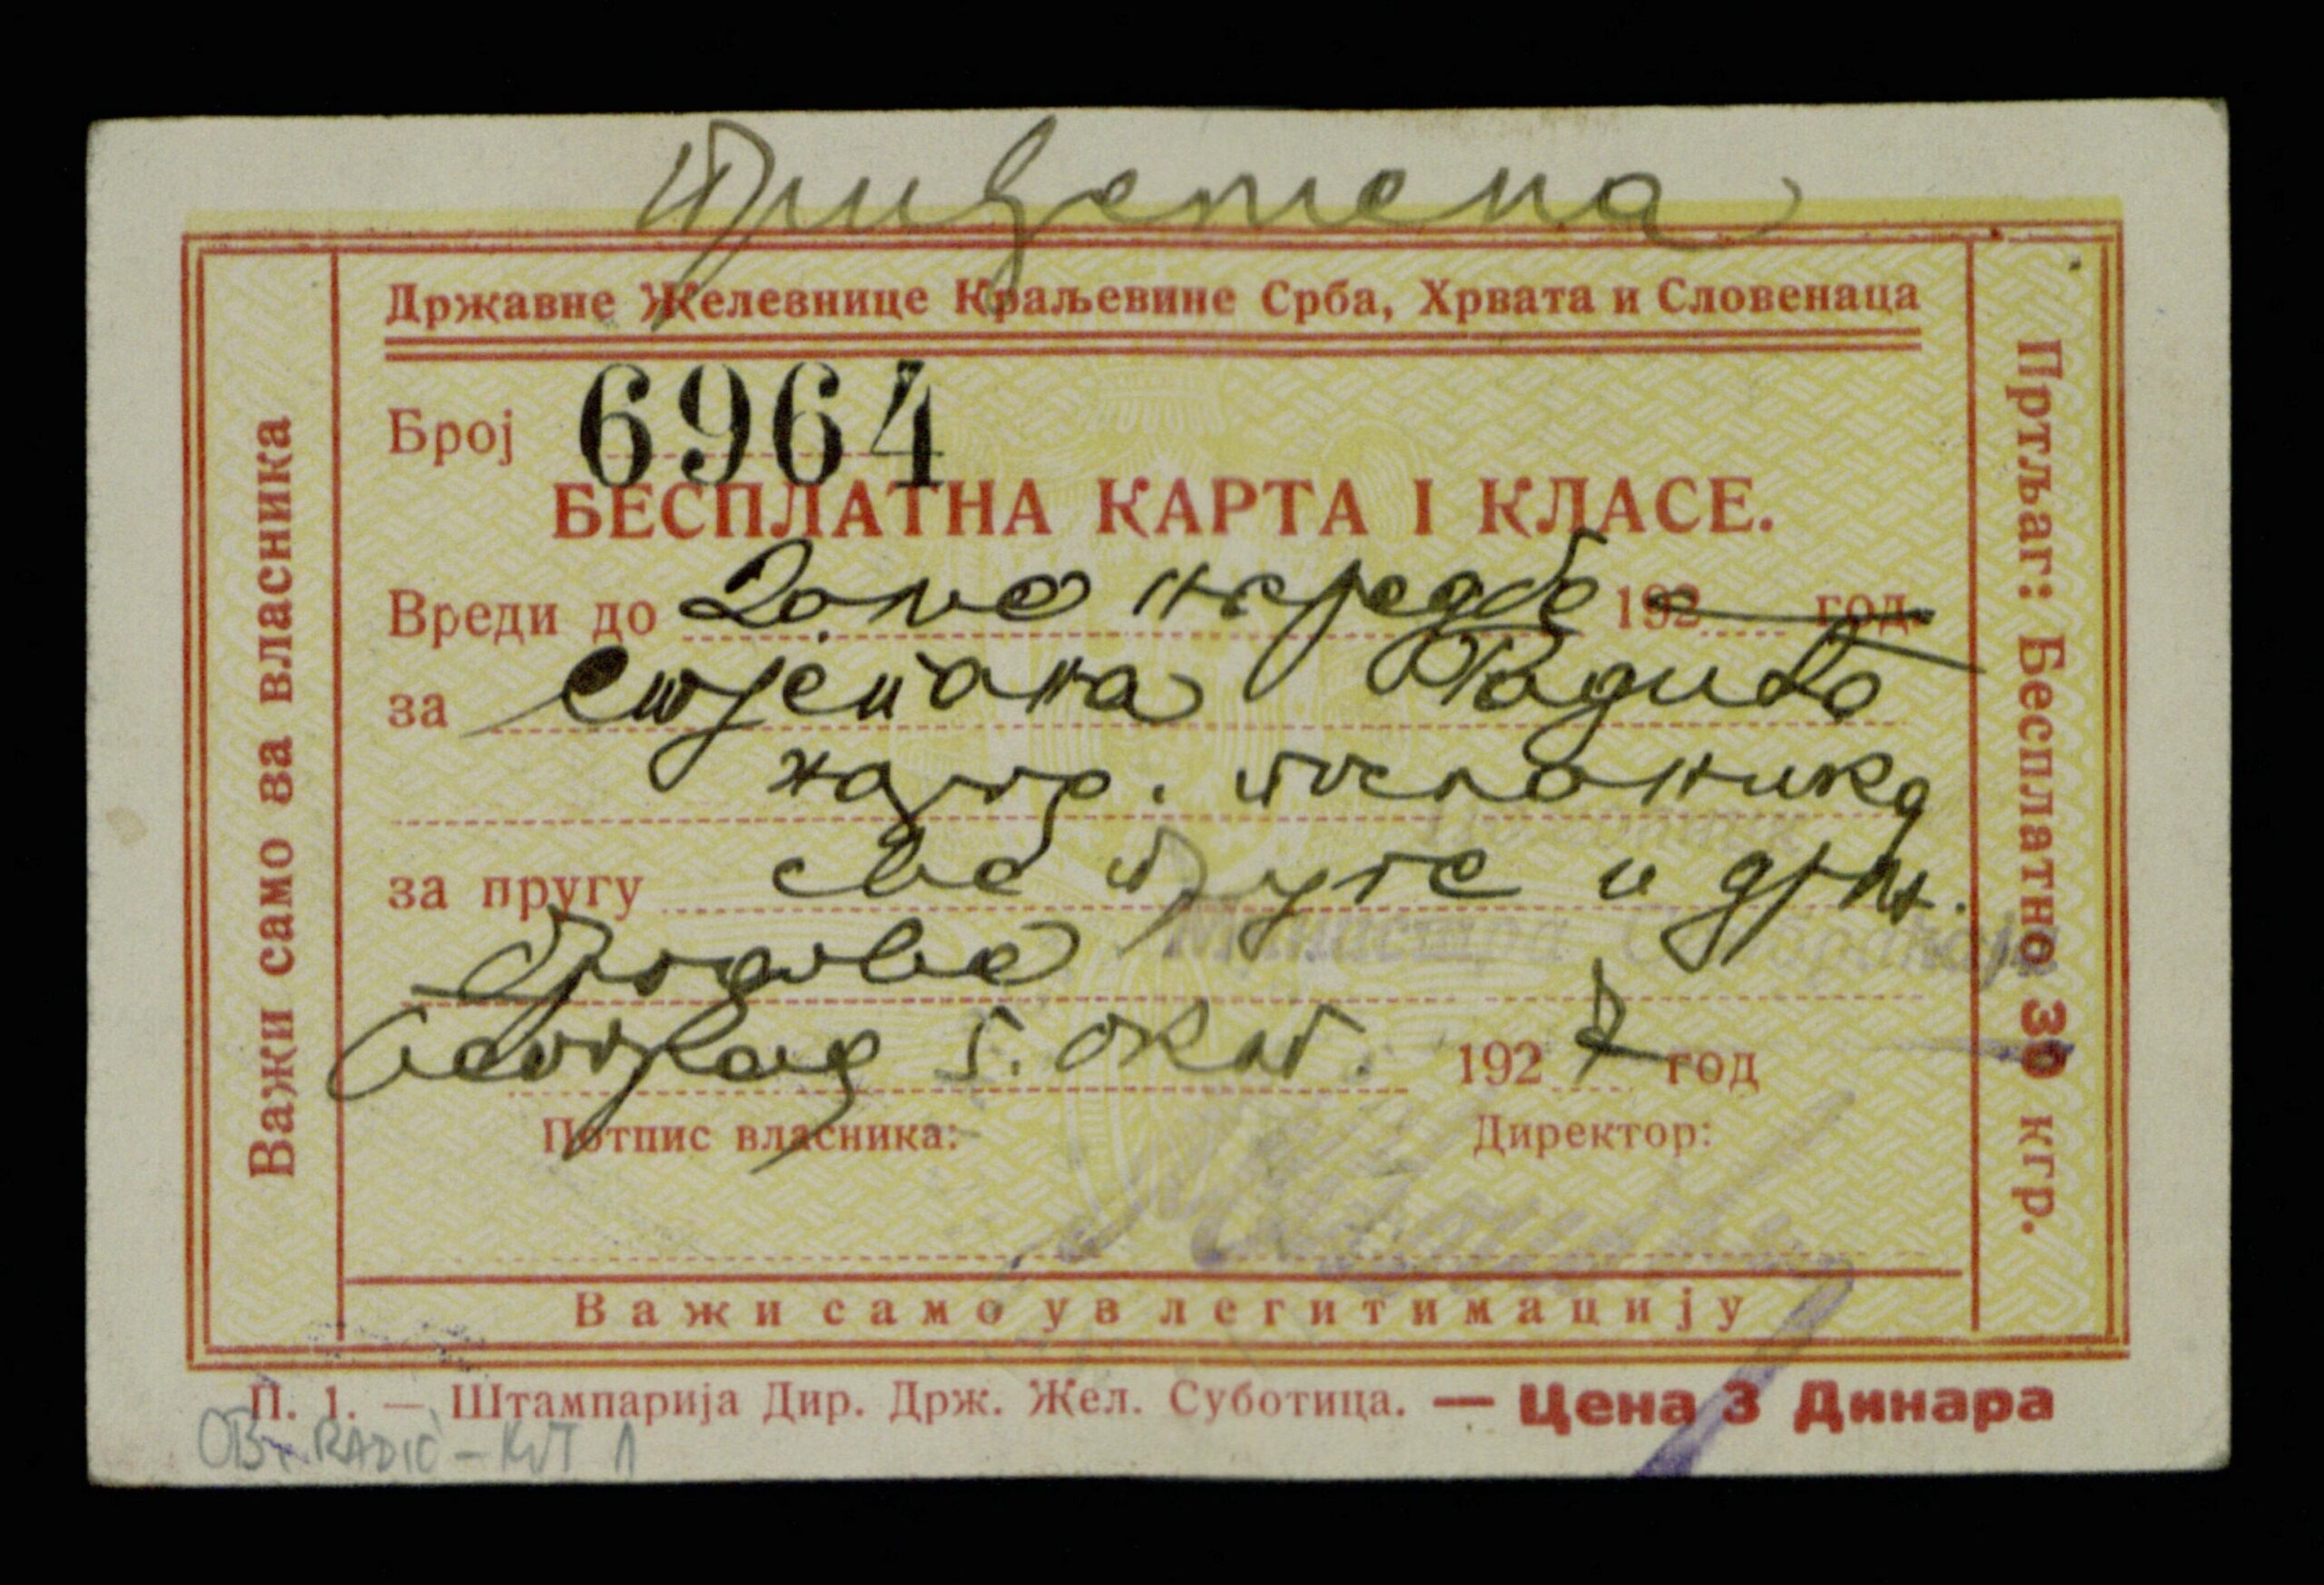 Привремена
Државне Железнице Краљевине Срба, Хрвата и Словенаца
Број 6964
БЕСПЛАТНА КАРТА I КЛАСЕ.
Вреди до даље наредбе 192 год.
за Стјепана Радића
народ. посланика
за пругу све пруге и држ.
бродове
Београд 5. окт. 1927 год
Потпис власника:
Директор:
Важи само уз легитимацију
Важи само за власника
Пртљаг: Бесплатно 30 кгр.
Министра Саобраћаја
П. 1. — Штампарија Дир. Држ. Жел. Суботица. — Цена 3 Динара
OB. RADIĆ - KUT 1